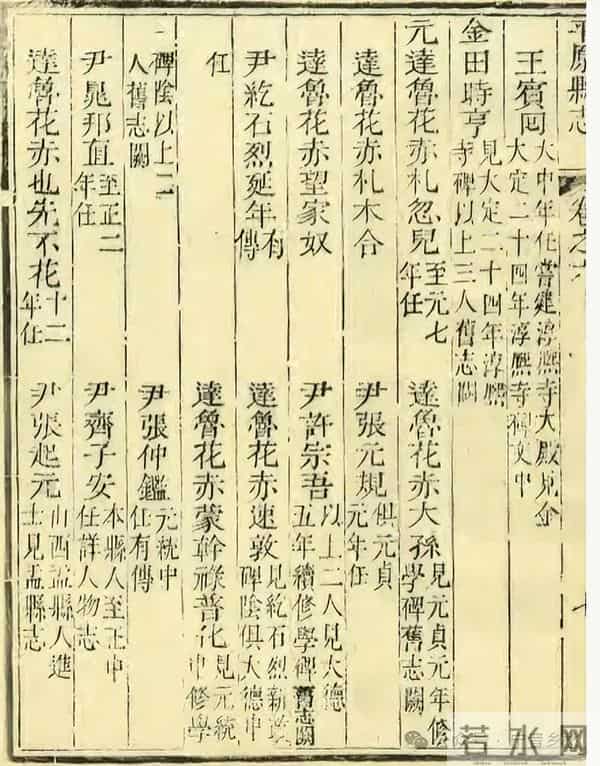 平原縣志 卷之六
王賓 大中年任嘗建淳熈寺大殿見金大定二十四年淳熈寺碑文中
金田時亨 見大定二十四年淳熈寺碑以上三人舊志闕
元達魯花赤札忽兒 至元七年任 達魯花赤大孫 見元貞元年修學碑舊志闕
達魯花赤札木合 尹張元規 俱元貞元年任
達魯花赤望家奴 尹許宗吾 以上二人見大德五年續修學碑舊志闕
尹紇石烈延年 有傳 達魯花赤速敦 見紇石烈新政碑陰俱大德中
任 達魯花赤蒙幹祿普化 見元統中修學
碑陰以上二人舊志闕 尹張仲鑑 元統中任有傳
尹晁那直 至正二年任 尹齊子安 本縣人至正中任詳人物志
達魯花赤也先不花 十二年任 尹張起元 山西盂縣人進士見盂縣志
若水网